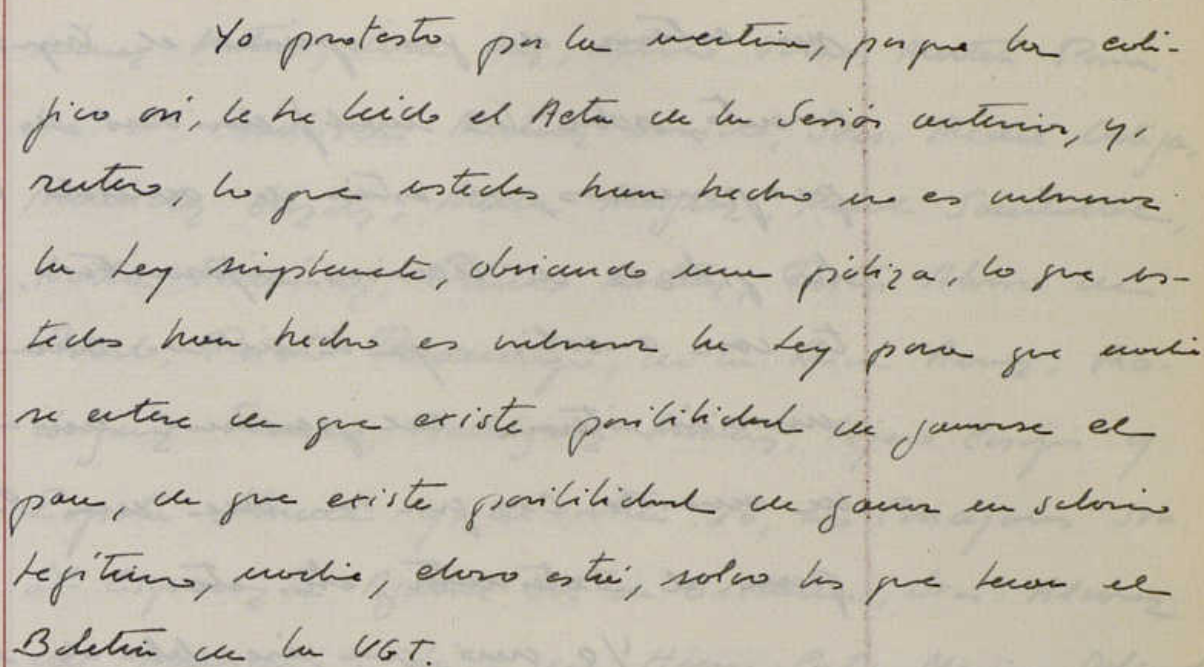 Yo protesto por la mentira, porque la cali-
fico así, le he leido el Acta de la Sesión anterior, y,
reitero, lo que ustedes han hecho no es vulnerar
la Ley simplemente, obviando una póliza, lo que us-
tedes han hecho es vulnerar la Ley para que nadie
se entere de que existe posibilidad de ganarse el
pan, de que existe posibilidad de ganar un salario
legítimo, nadie, claro está, salvo los que lean el
Boletin de la UGT.